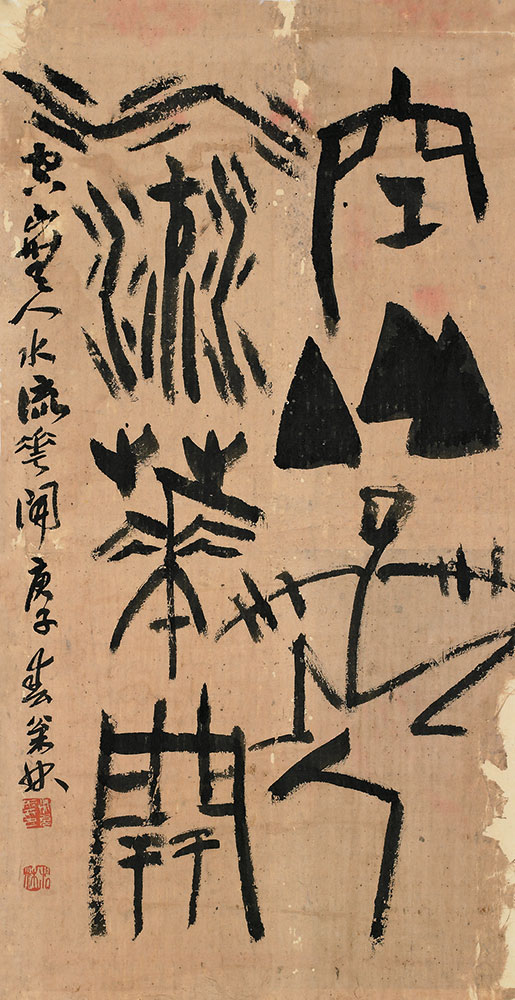 空山無人
水流華開
空山無人水流花開 庚子春